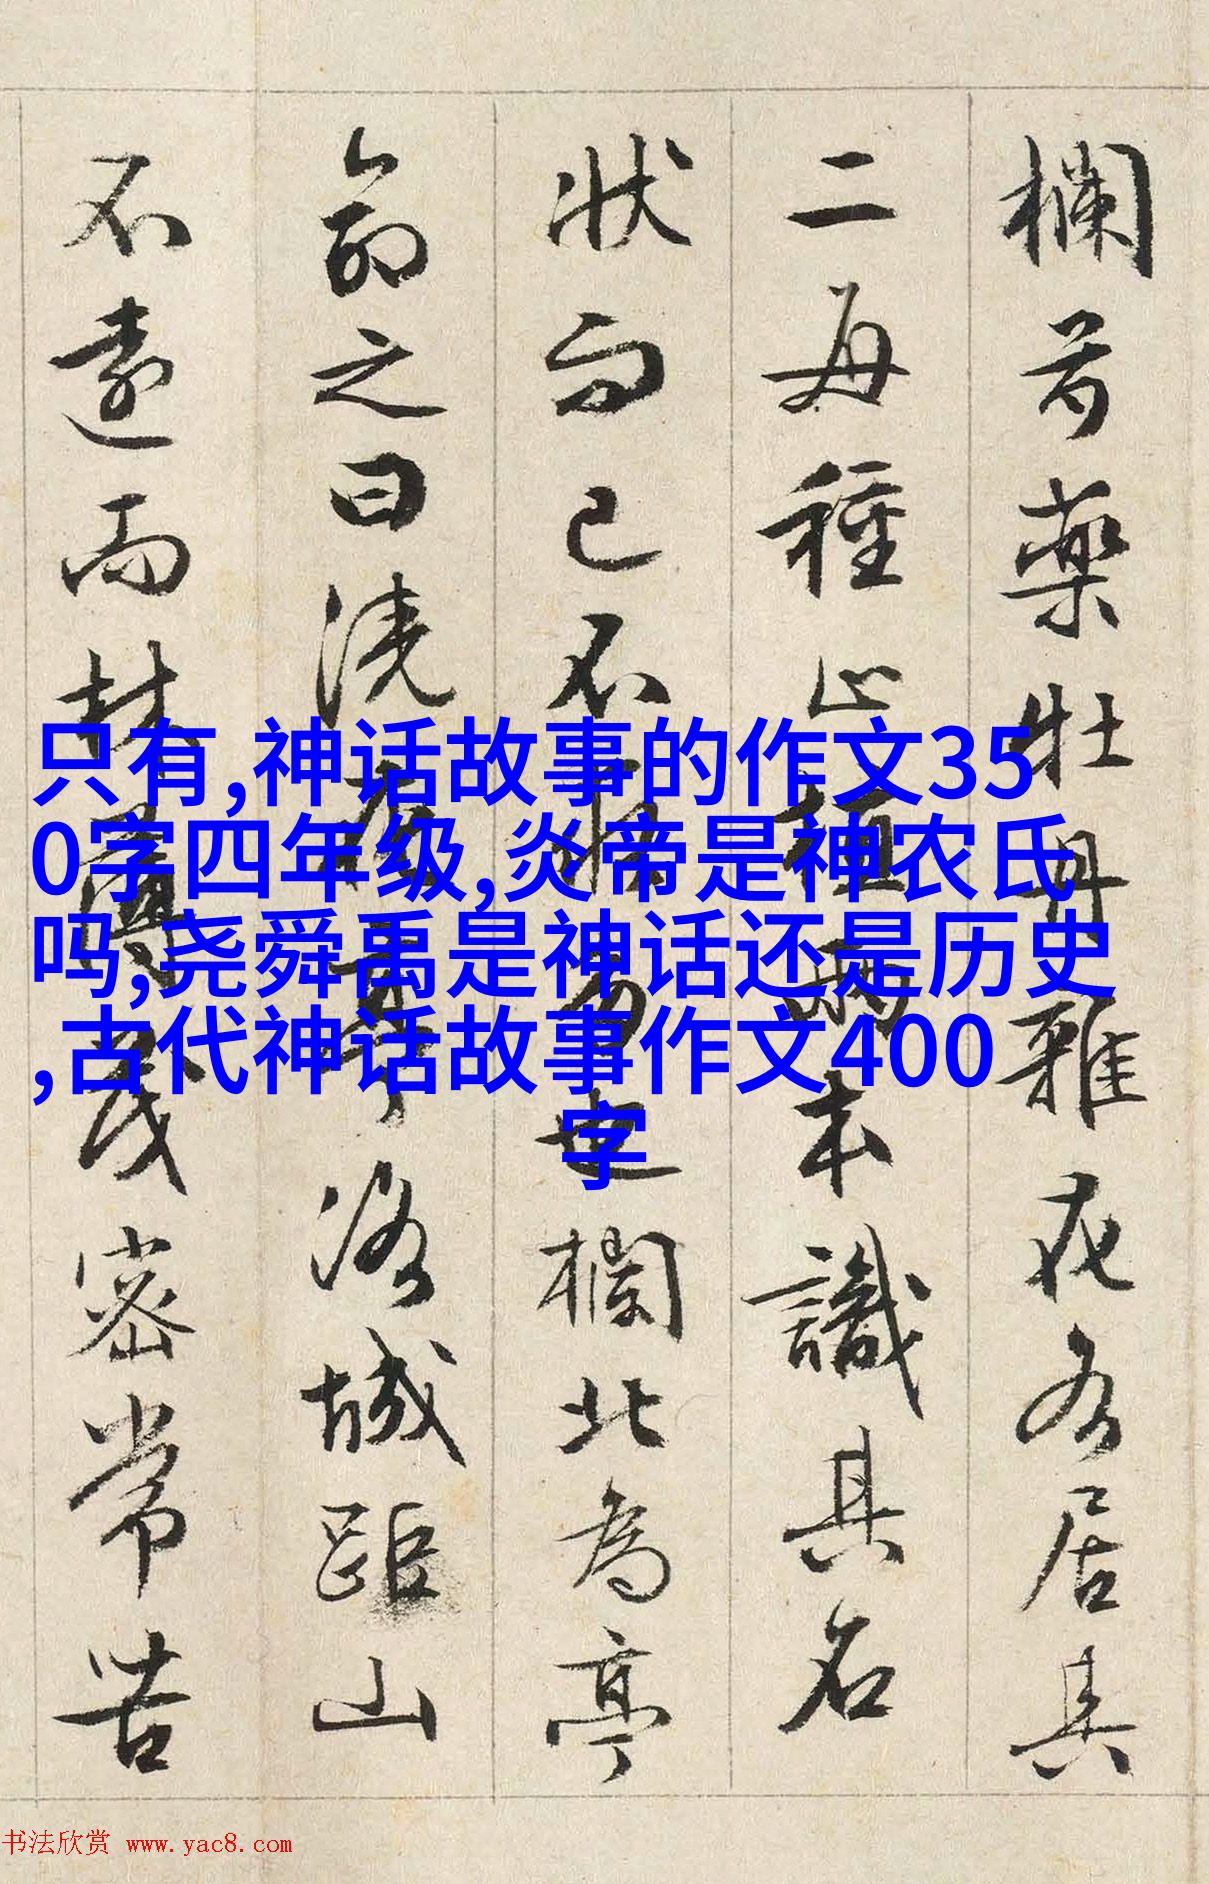 欄芍藥牡丹雜花各居其
二每種止植兩本識其名
狀而已不求多也欄北為亭
命之曰澆花亭洛城距山
不遠而林薄茂密常苦
只有,神话故事的作文35
0字四年级,炎帝是神农氏
吗,尧舜禹是神话还是历史
,古代神话故事作文400
字
书法欣赏 www.yac8.com